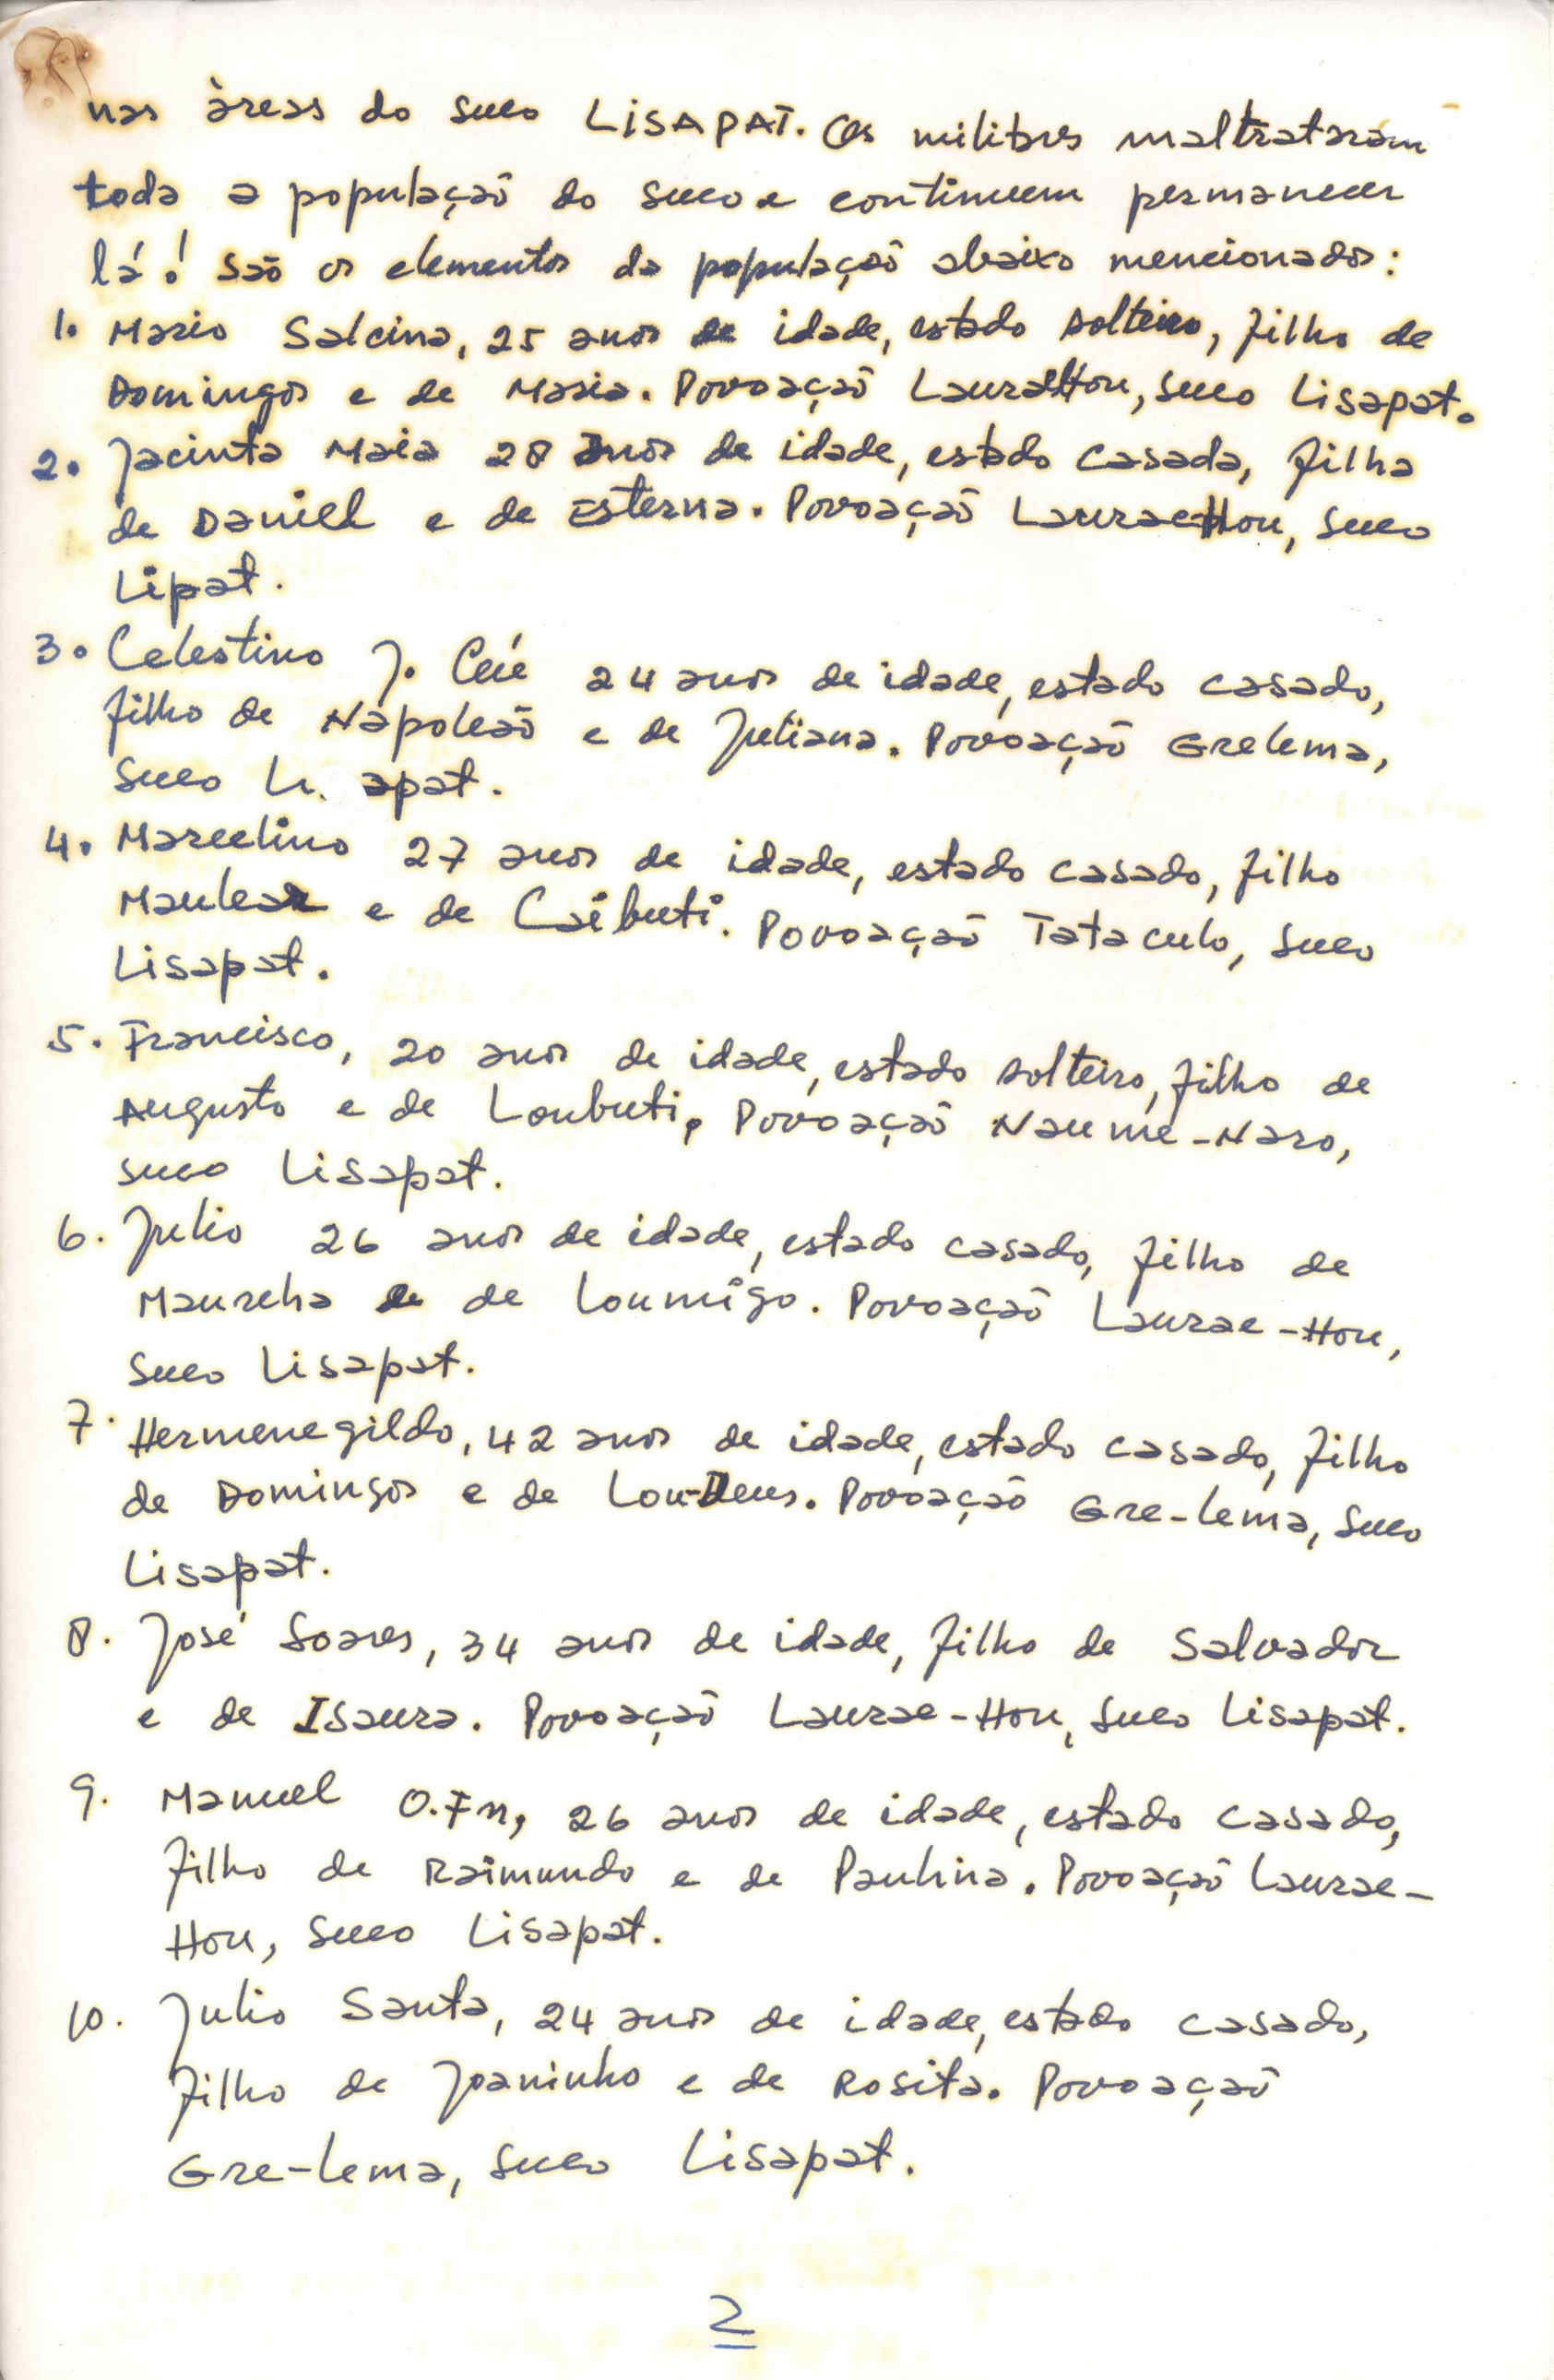 nas àreas do suco LISAPAT. Os militares maltrataram
toda a populaçaõ do suco e continuem permanecer
lá! Saõ os elementos da populaçaõ abaixo mencionados:
1. Mario Salcina, 25 anos de idade, estado solteiro, filho de
Domingos e de Maria. Povoaçaõ LauraeHou, suco Lisapat.
2. Jacinta Maia 28 anos de idade, estado casada, filha
de Daniel e de Esterna. Povoaçaõ LauraeHou, suco
Lipat.
3. Celestino J. 24 anos de idade, estado casado,
filho de Napoleaõ e de Juliana. Povoaçaõ Grelema,
Suco Li apat.
4. Marcelino 27 anos de idade, estado casado, filho
Maulear e de Caibuti. Povoaçaõ Tataculo, suco
Lisapat.
5. Francisco, 20 anos de idade, estado solteiro, filho de
Augusto e de Loubuti, Povoaçaõ Naume-Naro,
suco Lisapat.
6. Julio 26 anos de idade, estado casado, filho de
Maureha e de Loumigo. Povoaçaõ Laurae-Hou,
Suco Lisapat.
7. Hermenegildo, 42 anos de idade, estado casado, filho
de Domingos e de Lou-Deus. Povoaçaõ Gre-lema, suco
Lisapat.
8. José Soares, 34 anos de idade, filho de Salvador
e de Isaura. Povoaçaõ Laurae-Hou, suco Lisapat.
9. Manuel O.Fn, 26 anos de idade, estado casado,
filho de Raimundo e de Paulina. Povoaçaõ Laurae-
Hou, suco Lisapat.
10. Julio Santa, 24 anos de idade, estado casado,
filho de Joaninho e de Rosita. Povoaçaõ
Gre-lema, suco Lisapat.
2